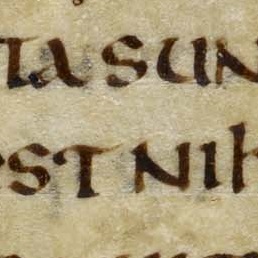 ta sun
st nih